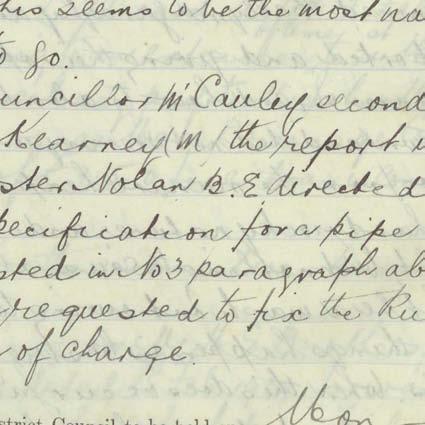 his seems to be the most na
to go.
uncillor McCauley second
Kearney (M) the report
ster Nolan B.E. directed
pecification for a pipe
sted in No 3 paragraph ab
requested to fix the Ru
of charge.
strict Council to be held on
Mon